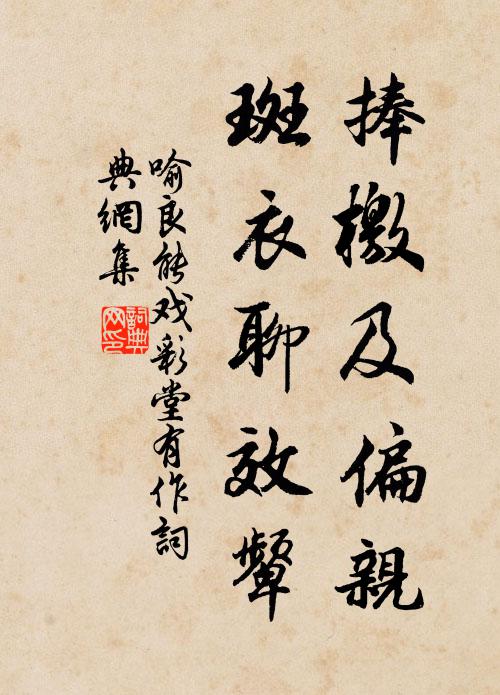 捧檄及偏親
斑衣聊效顰
喻良能戏彩堂有作詞
典網集
詞典网印